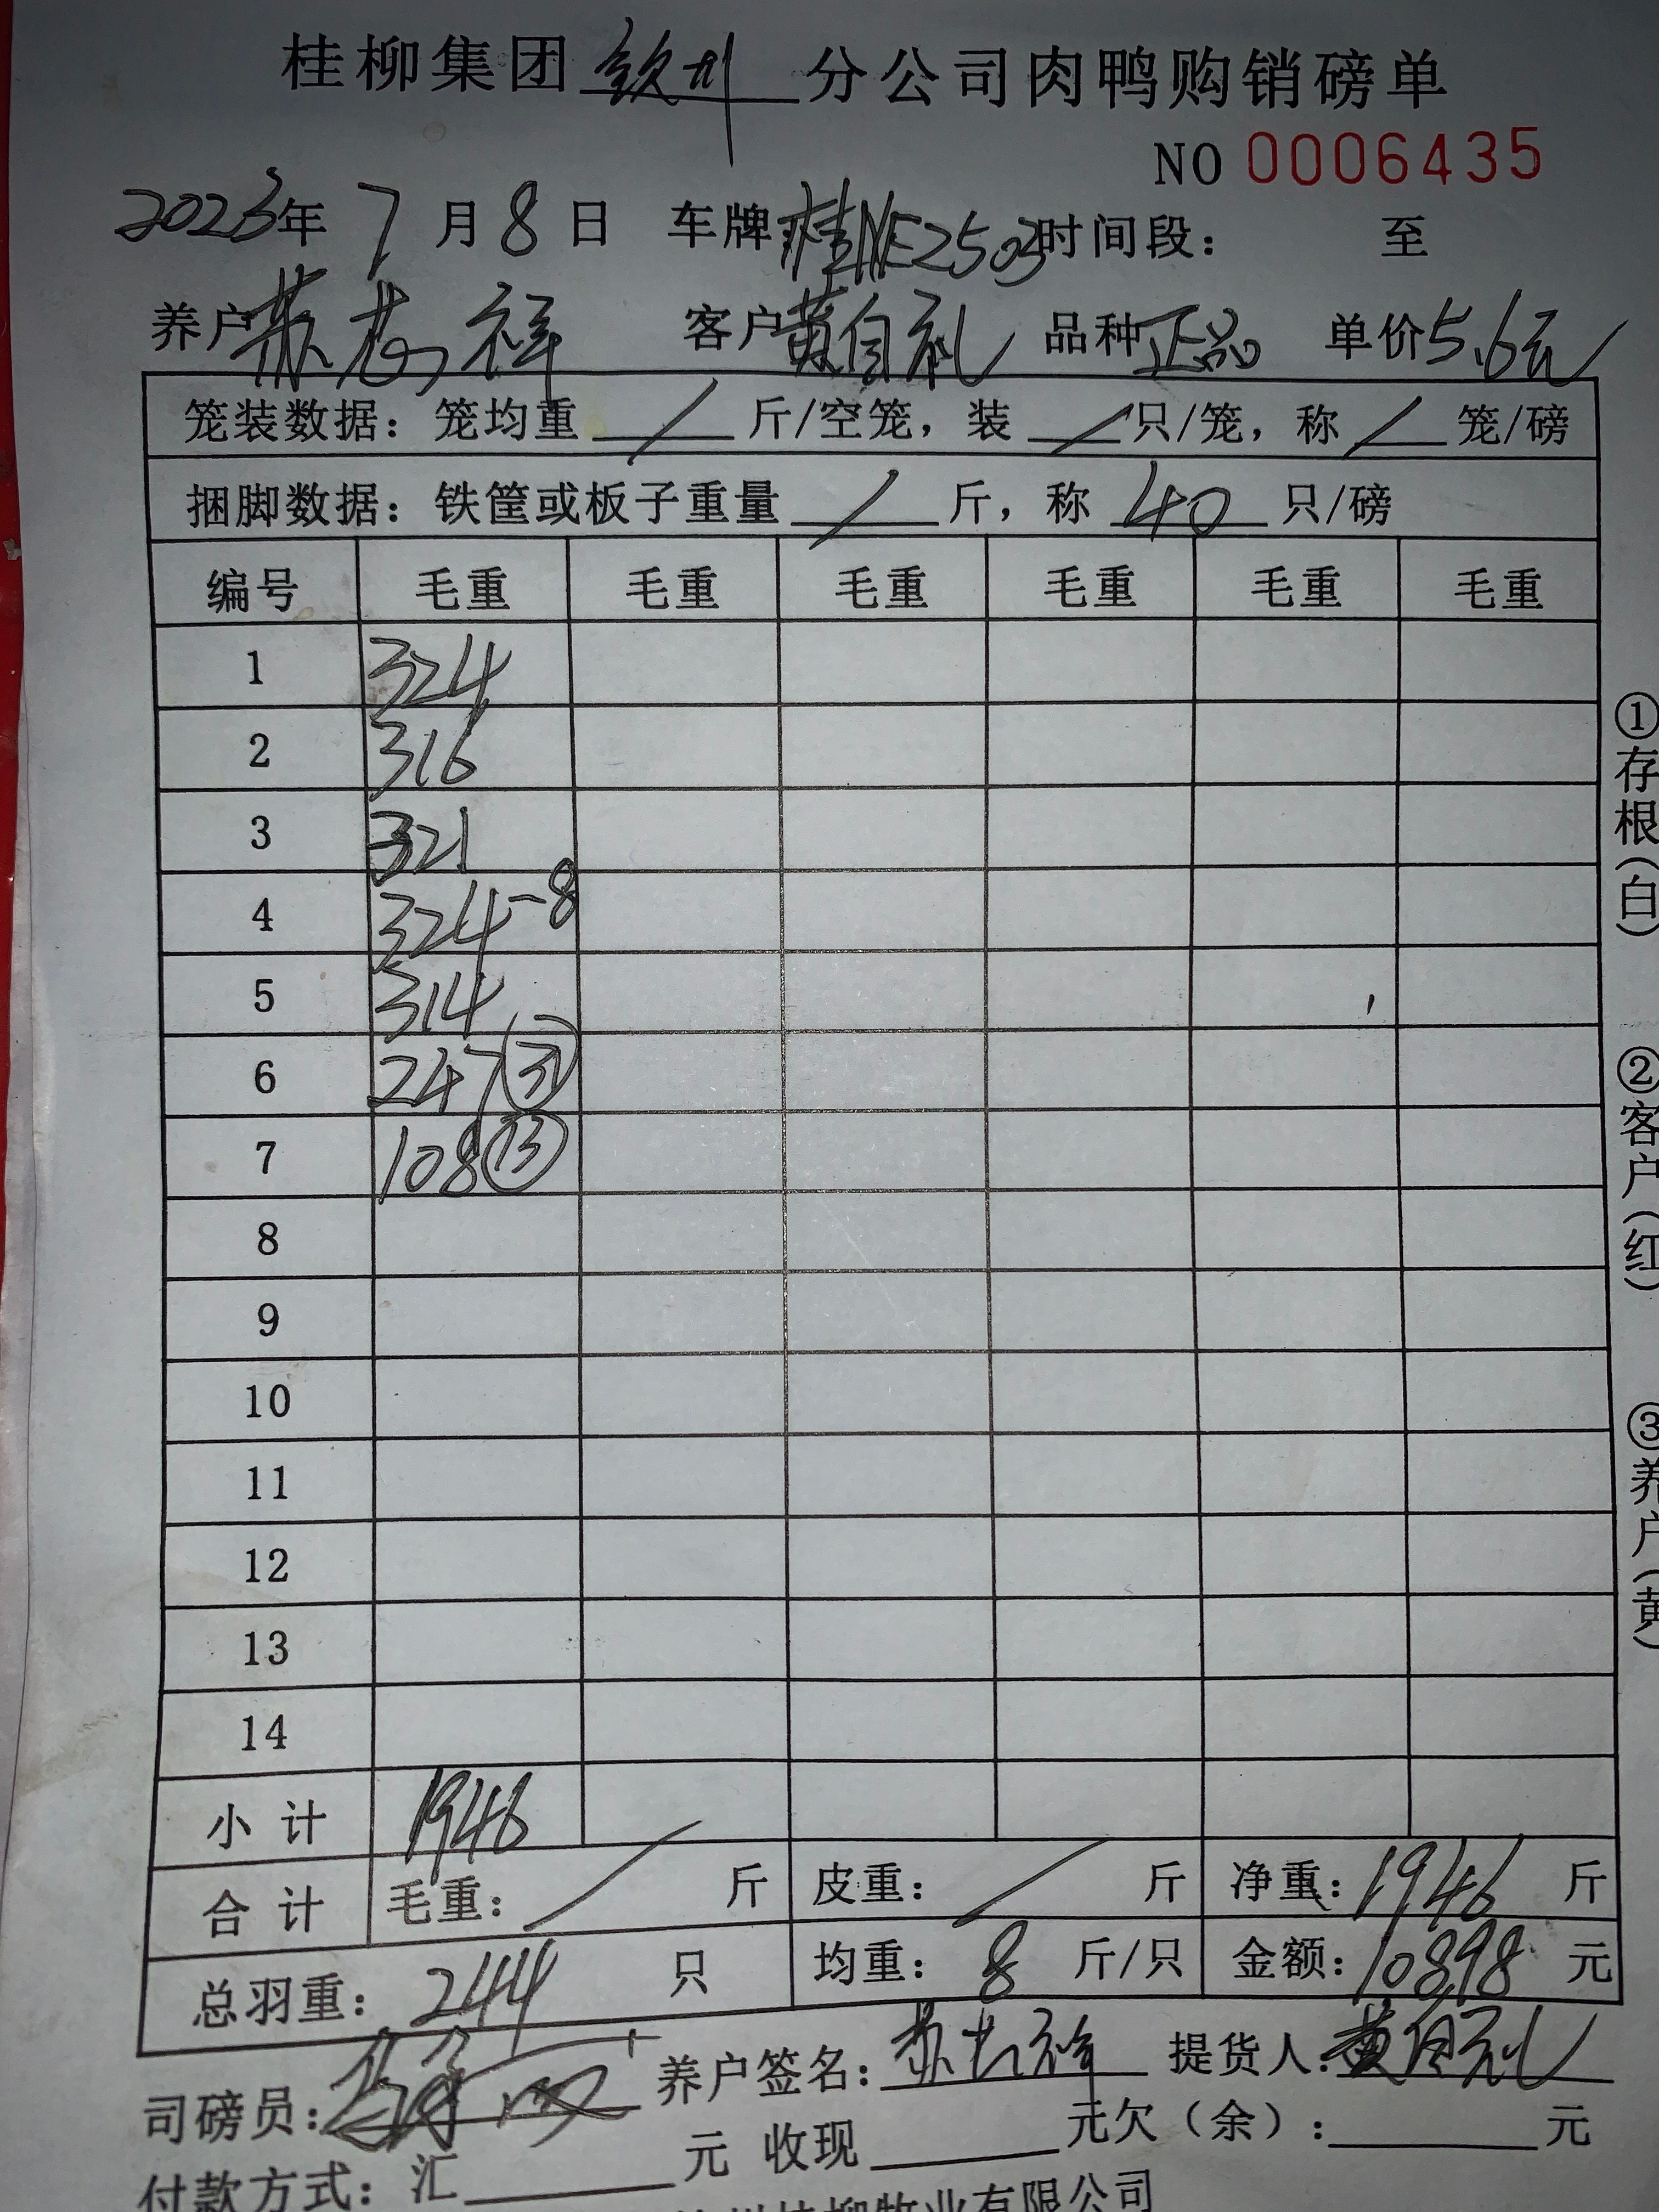 桂柳集团钦州分公司肉鸭购销磅单
NO 0006435
2023年7月8日 车牌桂NE2503时间段: 至
养户苏 祥 客户黄自礼 品种正品 单价5.6元
笼装数据:笼均重 / 斤/空笼,装 / 只/笼,称 / 笼/磅
捆脚数据:铁筐或板子重量 / 斤,称 40 只/磅
编号 毛重 毛重 毛重 毛重 毛重 毛重
1 324
2 316
3 321
4 324-8
5 314
6 247(31)
7 108(13)
8
9
10
11
12
13
14
小计 1946
合计 毛重: / 斤 皮重: / 斤 净重:1946 斤
总羽重:244 只 均重:8 斤/只 金额:10898 元
司磅员: 养户签名:苏 祥 提货人:黄自礼
付款方式:汇 元 收现 元欠(余): 元
柳牧业有限公司
①存根(白)
②客户(红)
③养户(黄)